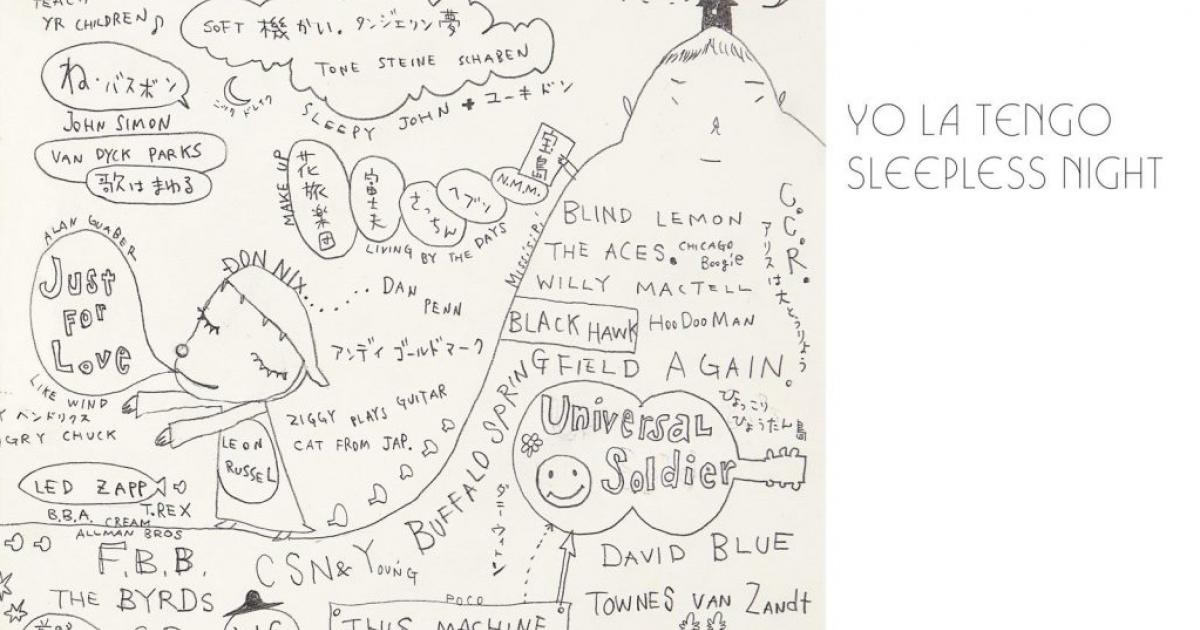 YR CHILDREN♪
SOFT 機かい。タンジェリン夢
TONE STEINE SCHABEN
ね・バスボン
ニック ドレイク
SLEEPY JOHN + ユーキドン
JOHN SIMON
VAN DYCK PARKS
歌はまわる
MAKE UP
花旅楽団
富士夫
さっちん
ヘブン
N.M.M.
宝島
LIVING BY THE DAYS
Mississipi
YO LA TENGO
SLEEPLESS NIGHT
ALAN GUABER
Just
For
Love
DON NIX........
DAN
PENN
アンディ ゴールドマーク
BLIND LEMON
THE ACES. CHICAGO
Boogie
WILLY MACTELL
BLACK HAWK
HOODOOMAN
C.C.R.
アリスは大とうりょう
BUFFALO SPRINGFIELD AGAIN.
LIKE WIND
ヘンドリクス
GRY CHUCK
ZIGGY PLAYS GUITAR
CAT FROM JAP.
LEON
RUSSEL
Universal
Soldier
ひょっこり
ひょうたん島
LED ZAPP
B.B.A.
CREAM
T.REX
ALLMAN BROS
ダニーウィットン
F.B.B.
CSN& YOUNG
DAVID BLUE
THE BYRDS
POCO
THIS MACHINE
TOWNES VAN Zandt